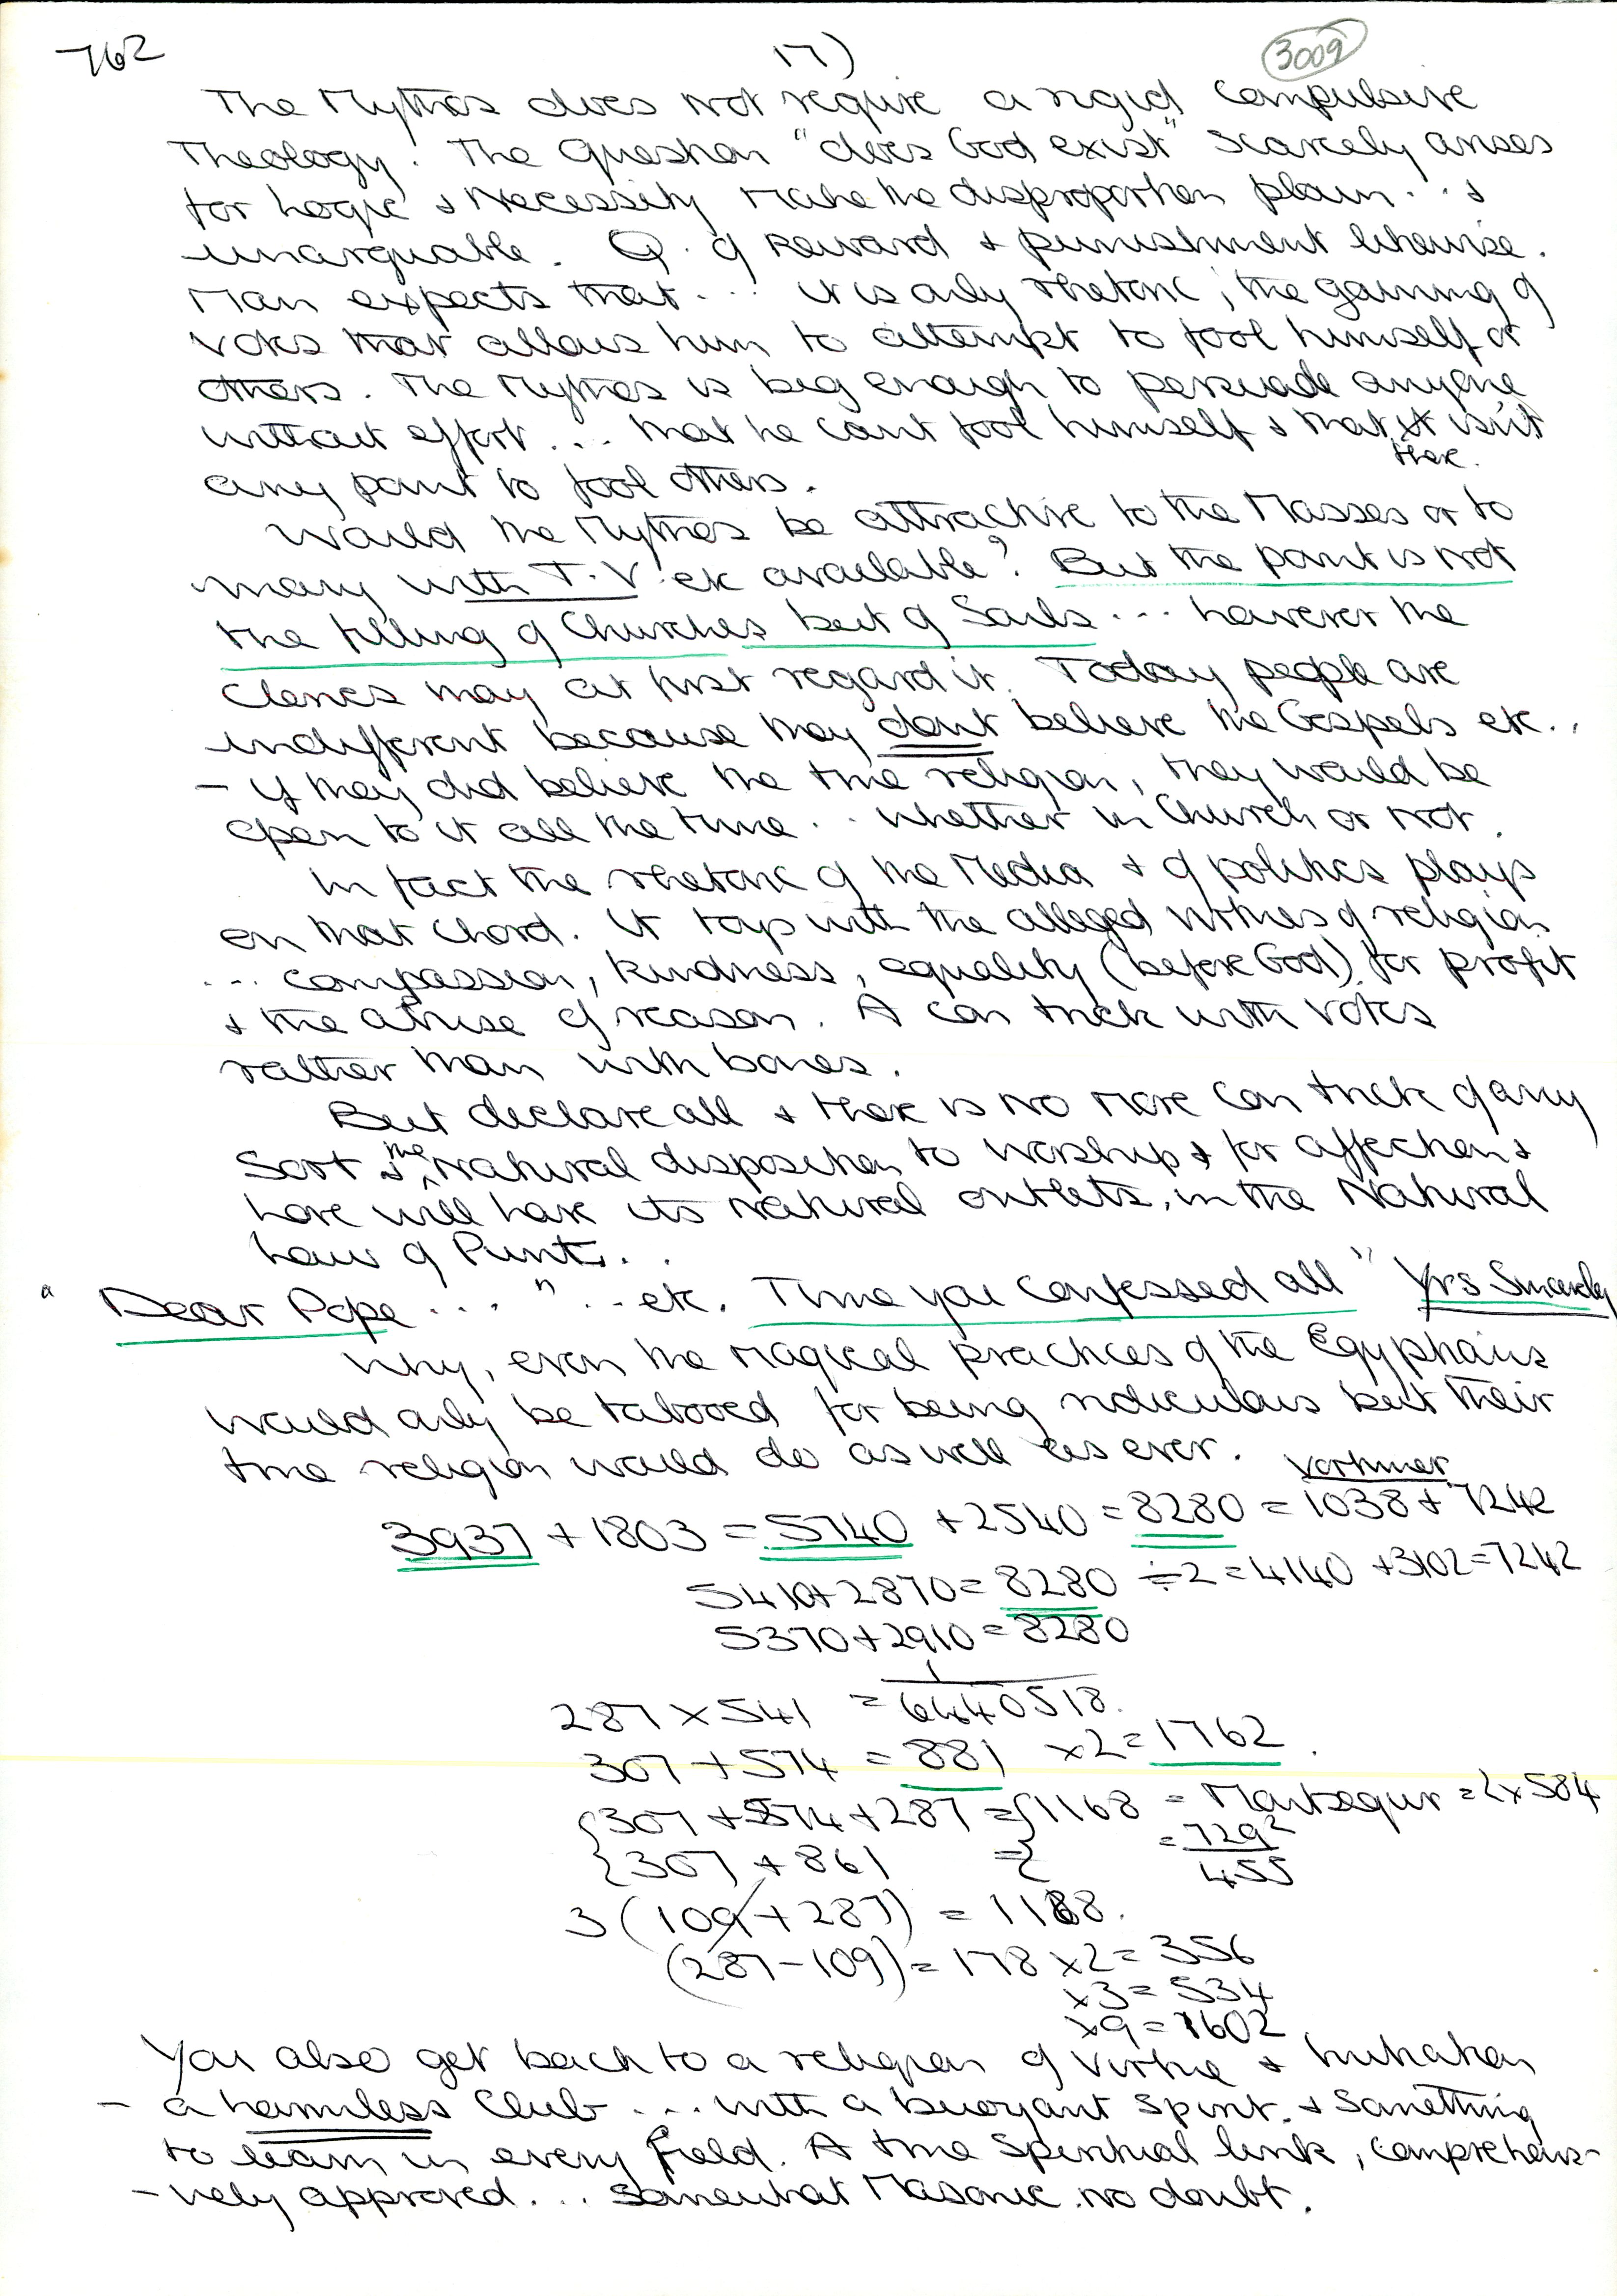 762
17)
3009
The Mythos does not require a rigid compulsive
Theology. The Question "does God exist" scarcely arises
for Logic & Necessity make the disproportion plain... &
unarguable. Q. of Reward & punishment likewise.
Man expects that... it is only rhetoric; the gaining of
votes that allows him to attempt to fool himself or
others. The Mythos is big enough to persuade anyone
without effort... that he can't fool himself & that isn't
there.
any point to fool others.
Would the Mythos be attractive to the Masses or to
many with T.V. etc available? But the point is not
the filling of Churches but of Souls... however the
Clerics may at first regard it. Today people are
indifferent because they dont believe the Gospels etc..
- If they did believe the true religion, they would be
open to it all the time... whether in Church or not.
In fact the rhetoric of the Media & of politics plays
on that chord. It toys with the alleged virtues of religion
... compassion, kindness, equality (before God) for profit
& the abuse of reason. A con trick with votes
rather than with bones.
But declare all & there is no more con trick of any
Sort & the natural disposition to worship & for affection &
love will have its natural outlets, in the Natural
Law of Punt...
" Dear Pope..." ...etc. Time you confessed all" Yrs Sincerely
Why, even the magical practices of the Egyptians
would only be tabooed for being ridiculous but their
true religion would do as well as ever.
Vortimer
3937 + 1803 = 5740 + 2540 = 8280 = 1038 + 7242
5410 + 2870 = 8280 ÷ 2 = 4140 + 3102 = 7242
5370 + 2910 = 8280
287 × 541 = 1/6440518.
307 + 574 = 881 × 2 = 1762.
{307 + 574 + 287 = {1168 = Montsegur = 2 × 584
{307 + 861 = { = 729²/455
3(109 + 287) = 1188.
(287 - 109) = 178 × 2 = 356
× 3 = 534
× 9 = 1602
You also get back to a religion of Virtue & Initiation
- a harmless Club... with a buoyant spirit. & something
to learn in every field. A true Spiritual link, comprehens-
-ively approved... somewhat Masonic no doubt.